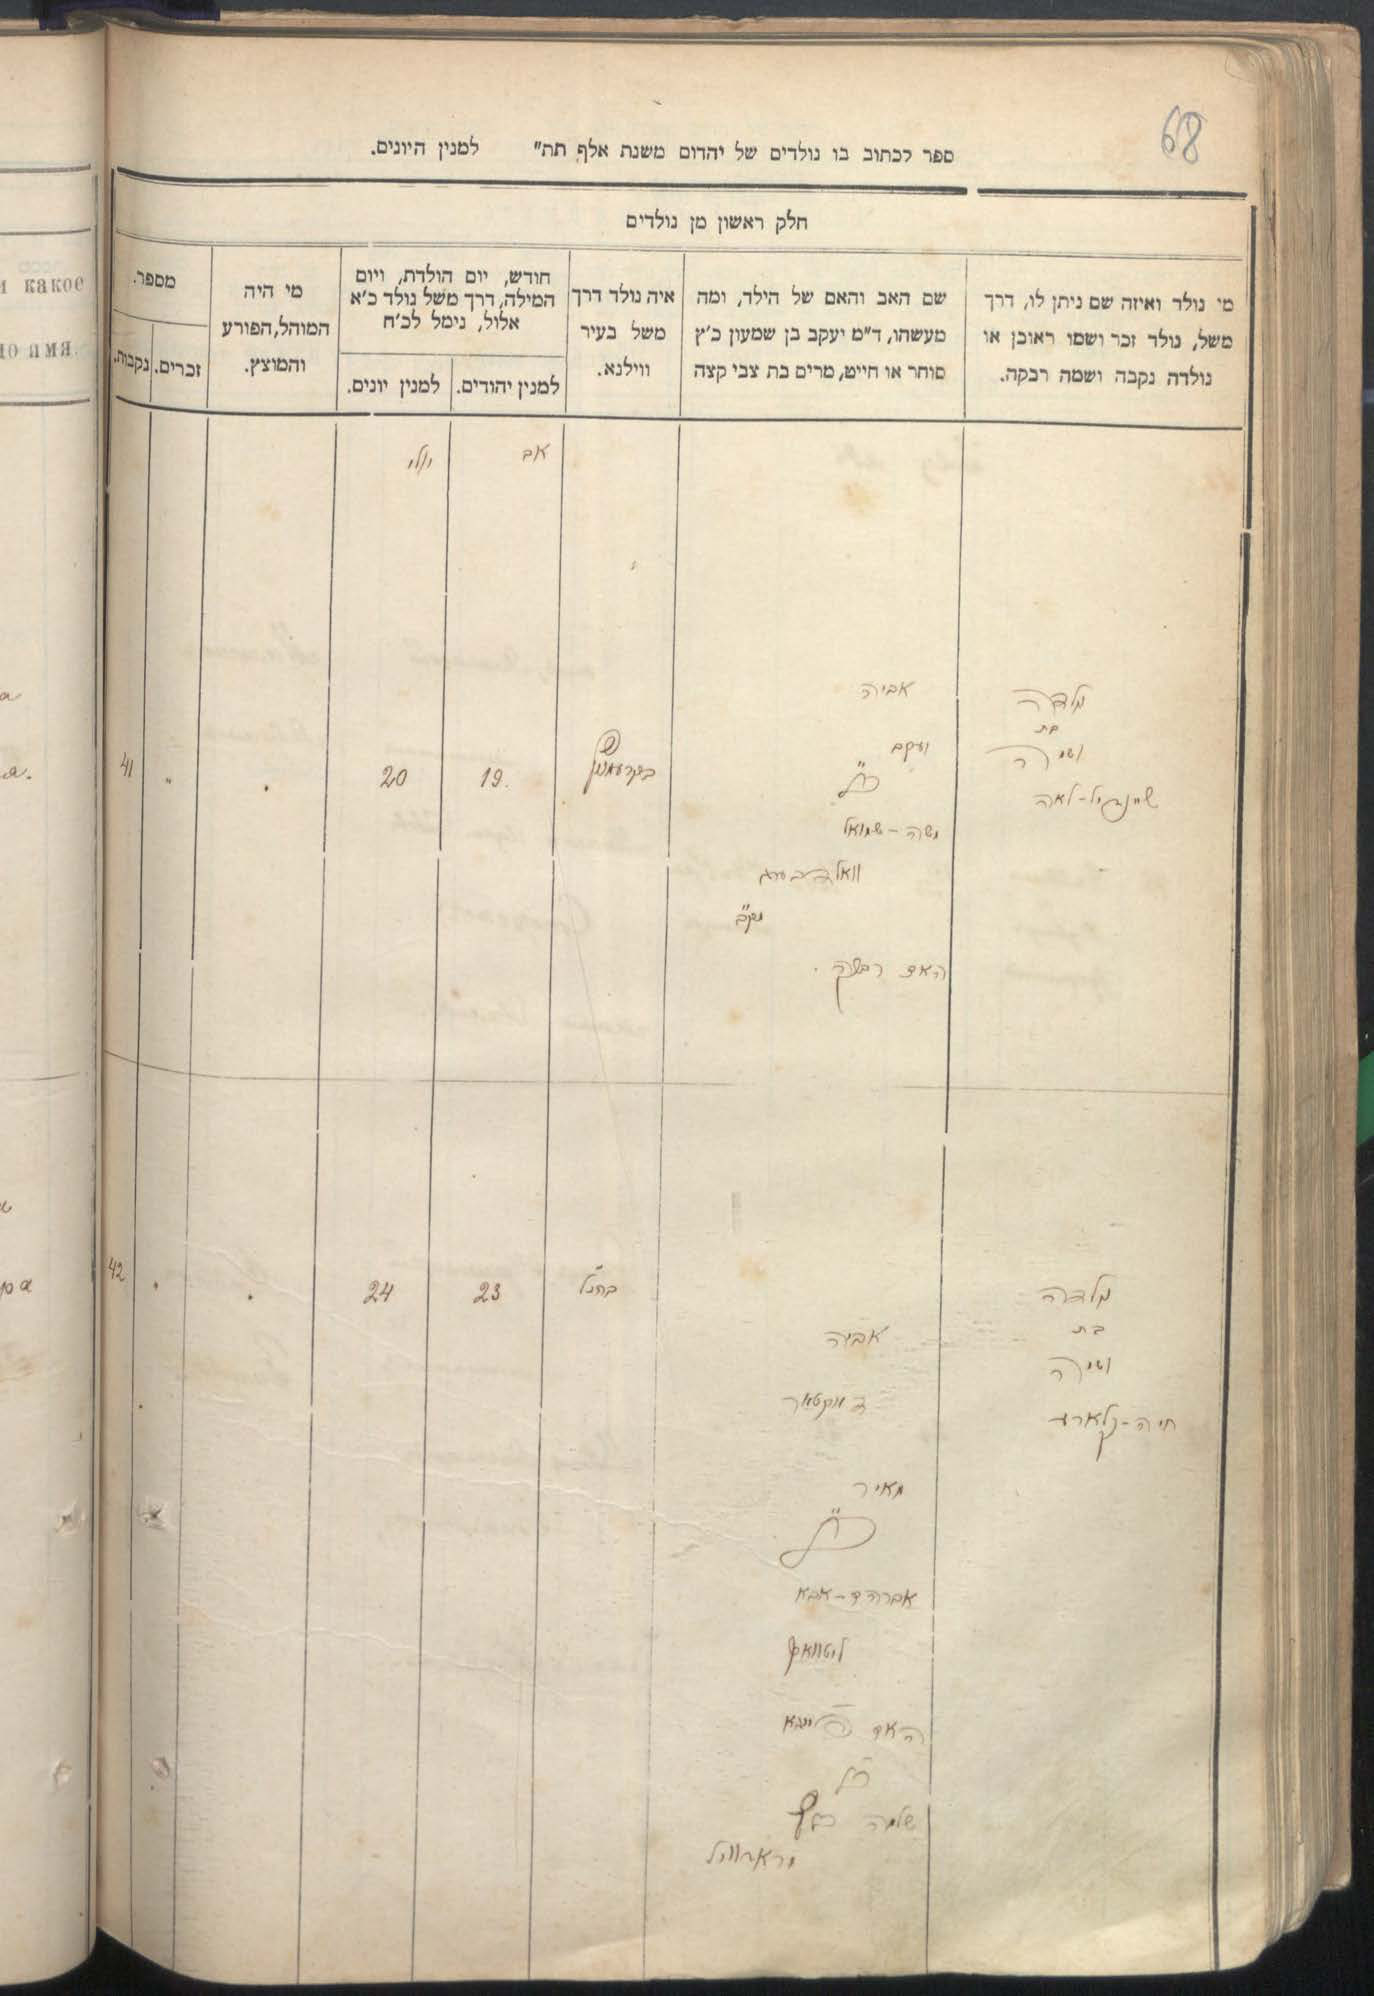 68
ספר לכתוב בו נולדים של יהדום משנת אלף תת" למנין היונים.
חלק ראשון מן נולדים
מי נולד ואיזה שם ניתן לו, דרך
משל, נולד זכר ושמו ראובן או
נולדה נקבה ושמה רבקה.
שם האב והאם של הילד, ומה
מעשהו, ד"מ יעקב בן שמעון כ"ץ
סוחר או חייט, מרים בת צבי קצה
איה נולד דרך
משל בעיר
ווילנא.
חודש, יום הולדת, ויום
המילה, דרך משל נולד כ'א
אלול, נימל לכ'ח
למנין יהודים.
למנין יונים.
מי היה
המוהל, הפורע
והמוצץ.
מספר.
זכרים.
נקבות.
и какое
но имя.
אב
יולי
נולדה
בת
ושמה
שיינדיל-לאה
אביה
יעקב
משה-שמואל
האם רבקה
19.
20
41
נולדה
בת
ושמה
חיה-קלארע
אביה
דאקטאר
מאיר
אברהם-אבא
האם
שלמה
בהנ"ל
23
24
42